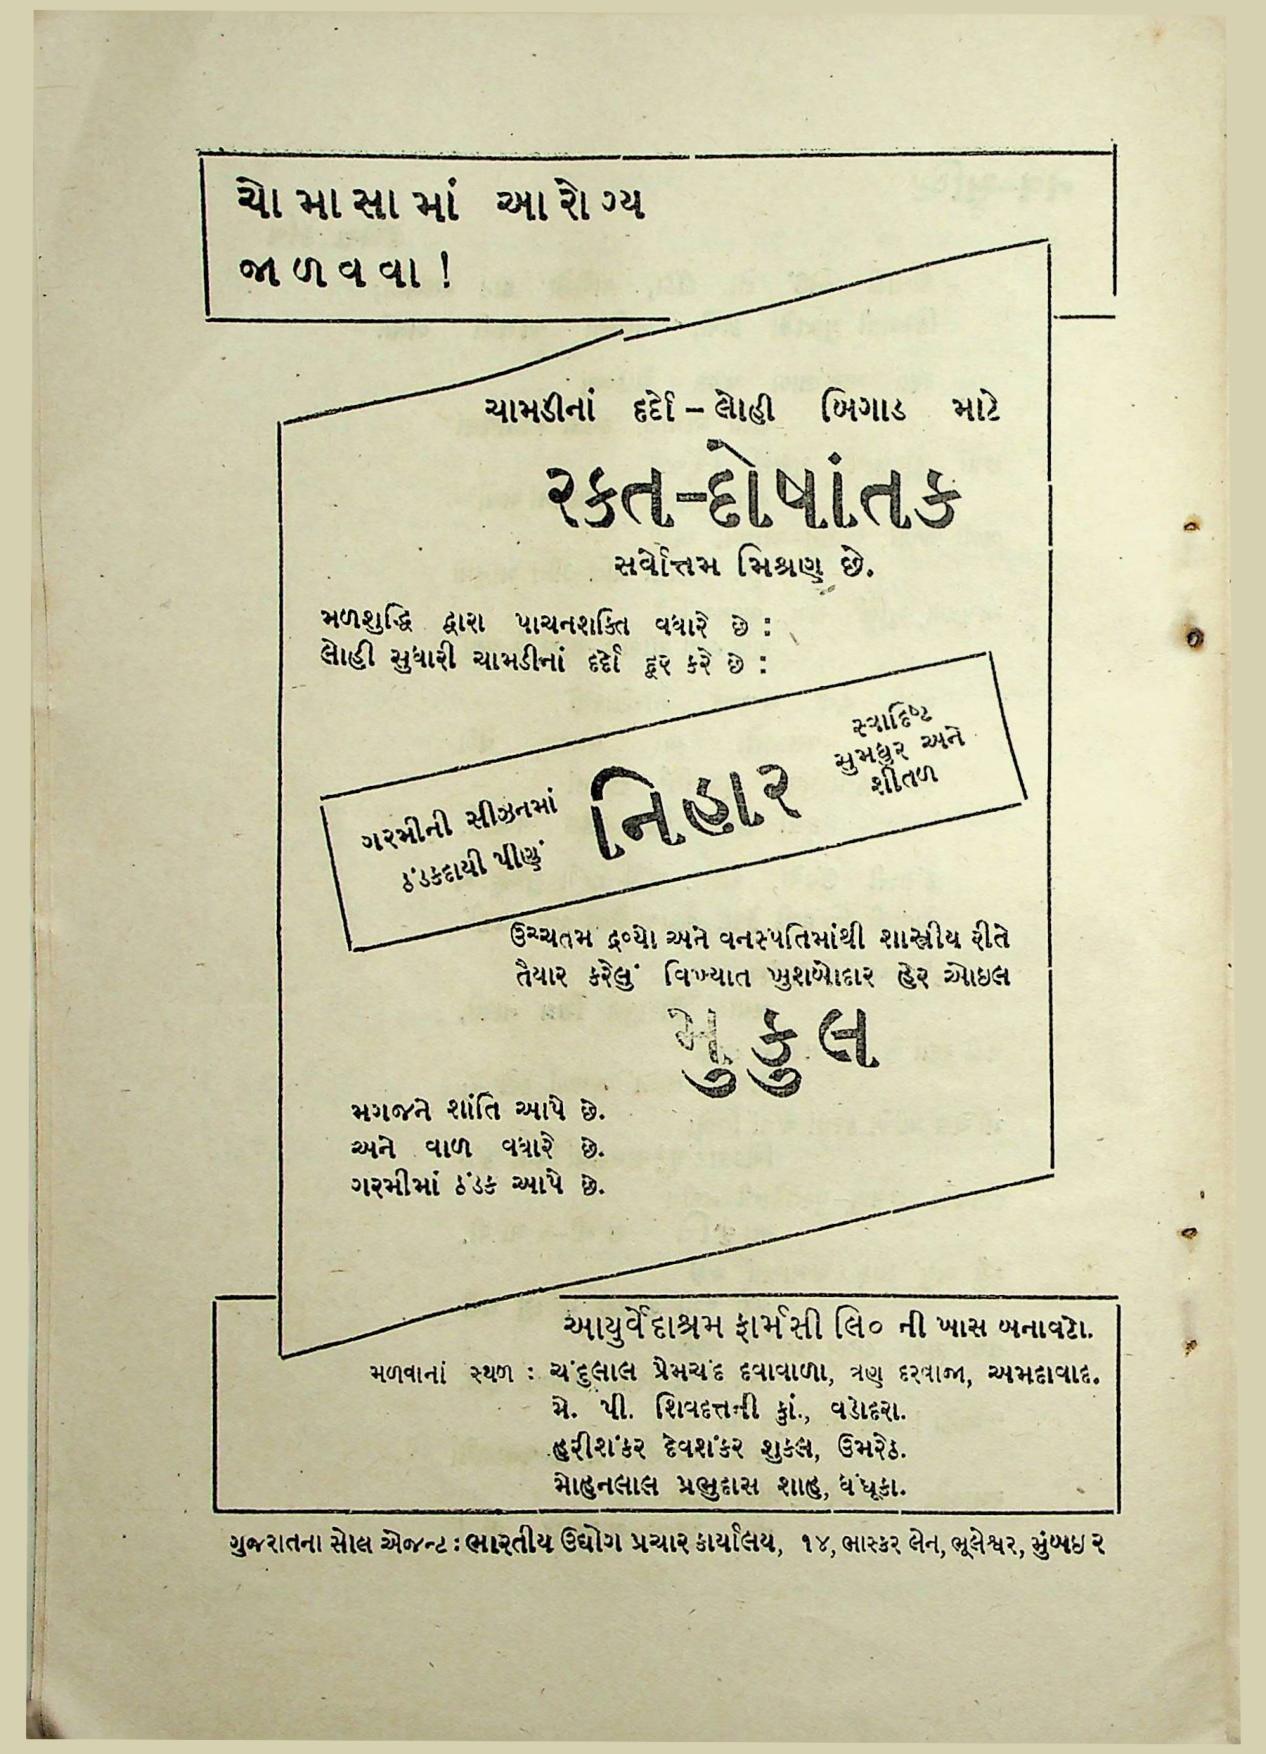 ચોમાસામાં આરોગ્ય
જાળવવા!
ચામડીનાં દર્દો – લોહી બિગાડ માટે
રકત-દોષાંતક
સર્વોત્તમ મિશ્રણ છે.
મળશુદ્ધિ દ્વારા પાચનશક્તિ વધારે છે :
લોહી સુધારી ચામડીનાં દર્દો દૂર કરે છે :
ગરમીની સીઝનમાં
ઠંડકદાયી પીણું
નિહાર
સ્વાદિષ્ટ
સુમધુર અને
શીતળ
ઉચ્ચતમ દ્રવ્યો અને વનસ્પતિમાંથી શાસ્ત્રીય રીતે
તૈયાર કરેલું વિખ્યાત ખુશબોદાર હેર ઓઇલ
મુકુલ
મગજને શાંતિ આપે છે.
અને વાળ વધારે છે.
ગરમીમાં ઠંડક આપે છે.
આયુર્વેદાશ્રમ ફાર્મસી લિ૦ ની ખાસ બનાવટો.
મળવાનાં સ્થળ : ચંદુલાલ પ્રેમચંદ દવાવાળા, ત્રણ દરવાજા, અમદાવાદ.
મે. પી. શિવદત્તની કું., વડોદરા.
હરીશંકર દેવશંકર શુકલ, ઉમરેઠ.
મોહનલાલ પ્રભુદાસ શાહ, ધંધૂકા.
ગુજરાતના સોલ એજન્ટ : ભારતીય ઉદ્યોગ પ્રચાર કાર્યાલય, ૧૪, ભાસ્કર લેન, ભૂલેશ્વર, મુંબઇ ૨